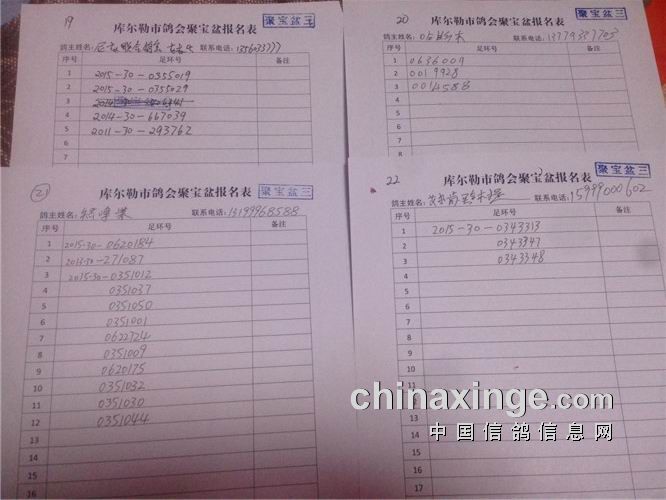 19
库尔勒市鸽会聚宝盆报名表
聚宝盆三
鸽主姓名: 联系电话:
序号 足环号 备注
1 2015-30-0355019
2 2015-30-0355029
3
4 2014-30-667039
5 2011-30-293762
6
7
20
库尔勒市鸽会聚宝盆报名表
聚宝盆三
鸽主姓名: 联系电话: 13779337703
序号 足环号 备注
1 0636009
2 0019928
3 0014588
4
5
6
7
8
21
库尔勒市鸽会聚宝盆报名表
聚宝盆三
鸽主姓名: 联系电话: 13199968588
序号 足环号 备注
1 2015-30-0620184
2 2013-30-271087
3 2015-30-0351012
4 0351037
5 0351050
6 0351001
7 0622724
8 0351009
9 0620175
10 0351032
11 0351030
12 0351044
13
14
15
16
22
库尔勒市鸽会聚宝盆报名表
聚宝盆三
鸽主姓名: 联系电话: 15999000602
序号 足环号 备注
1 2015-30-0343313
2 0343347
3 0343348
4
5
6
7
8
9
10
11
12
13
14
15
16
17
chinaxinge.com
中国信鸽信息网